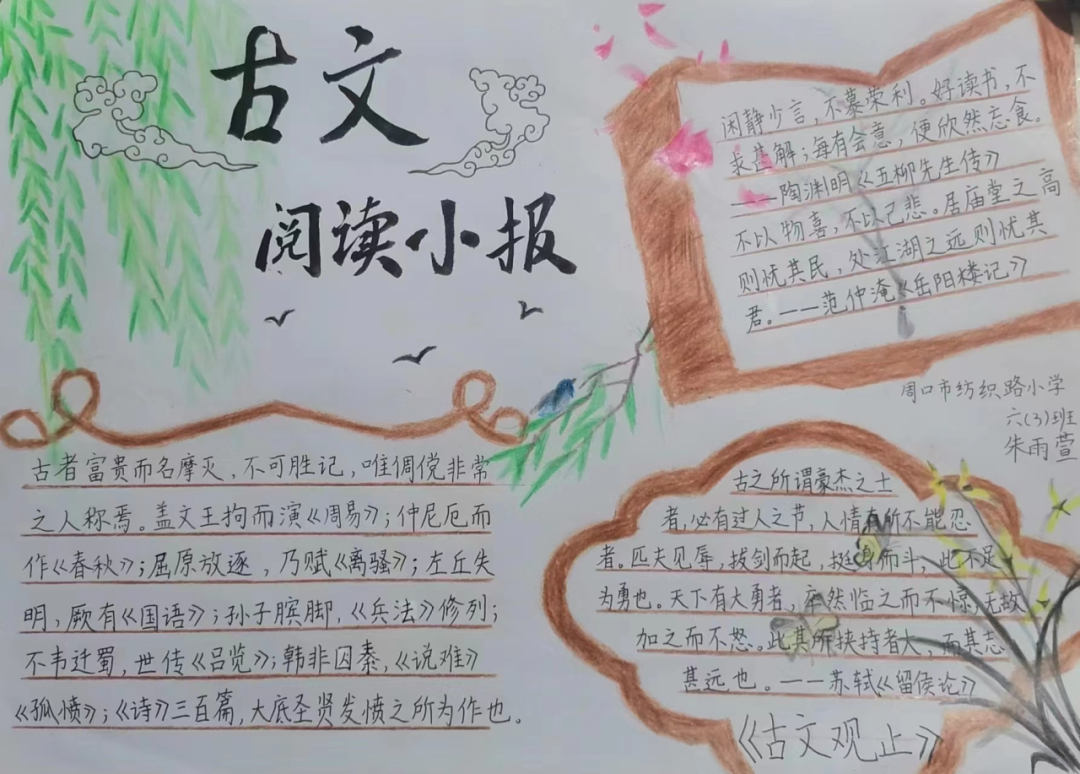 古文
阅读小报
闲静少言，不慕荣利。好读书，不
求甚解；每有会意，便欣然忘食。
——陶渊明《五柳先生传》
不以物喜，不以己悲。居庙堂之高
则忧其民，处江湖之远则忧其
君。——范仲淹《岳阳楼记》
周口市纺织路小学
六(3)班
朱雨萱
古者富贵而名摩灭，不可胜记，唯倜傥非常
之人称焉。盖文王拘而演《周易》；仲尼厄而
作《春秋》；屈原放逐，乃赋《离骚》；左丘失
明，厥有《国语》；孙子膑脚，《兵法》修列；
不韦迁蜀，世传《吕览》；韩非囚秦，《说难》
《孤愤》；《诗》三百篇，大底圣贤发愤之所为作也。
古之所谓豪杰之士
者，必有过人之节，人情有所不能忍
者。匹夫见辱，拔剑而起，挺身而斗，此不足
为勇也。天下有大勇者，卒然临之而不惊，无故
加之而不怒。此其所挟持者大，而其志
甚远也。——苏轼《留侯论》
《古文观止》